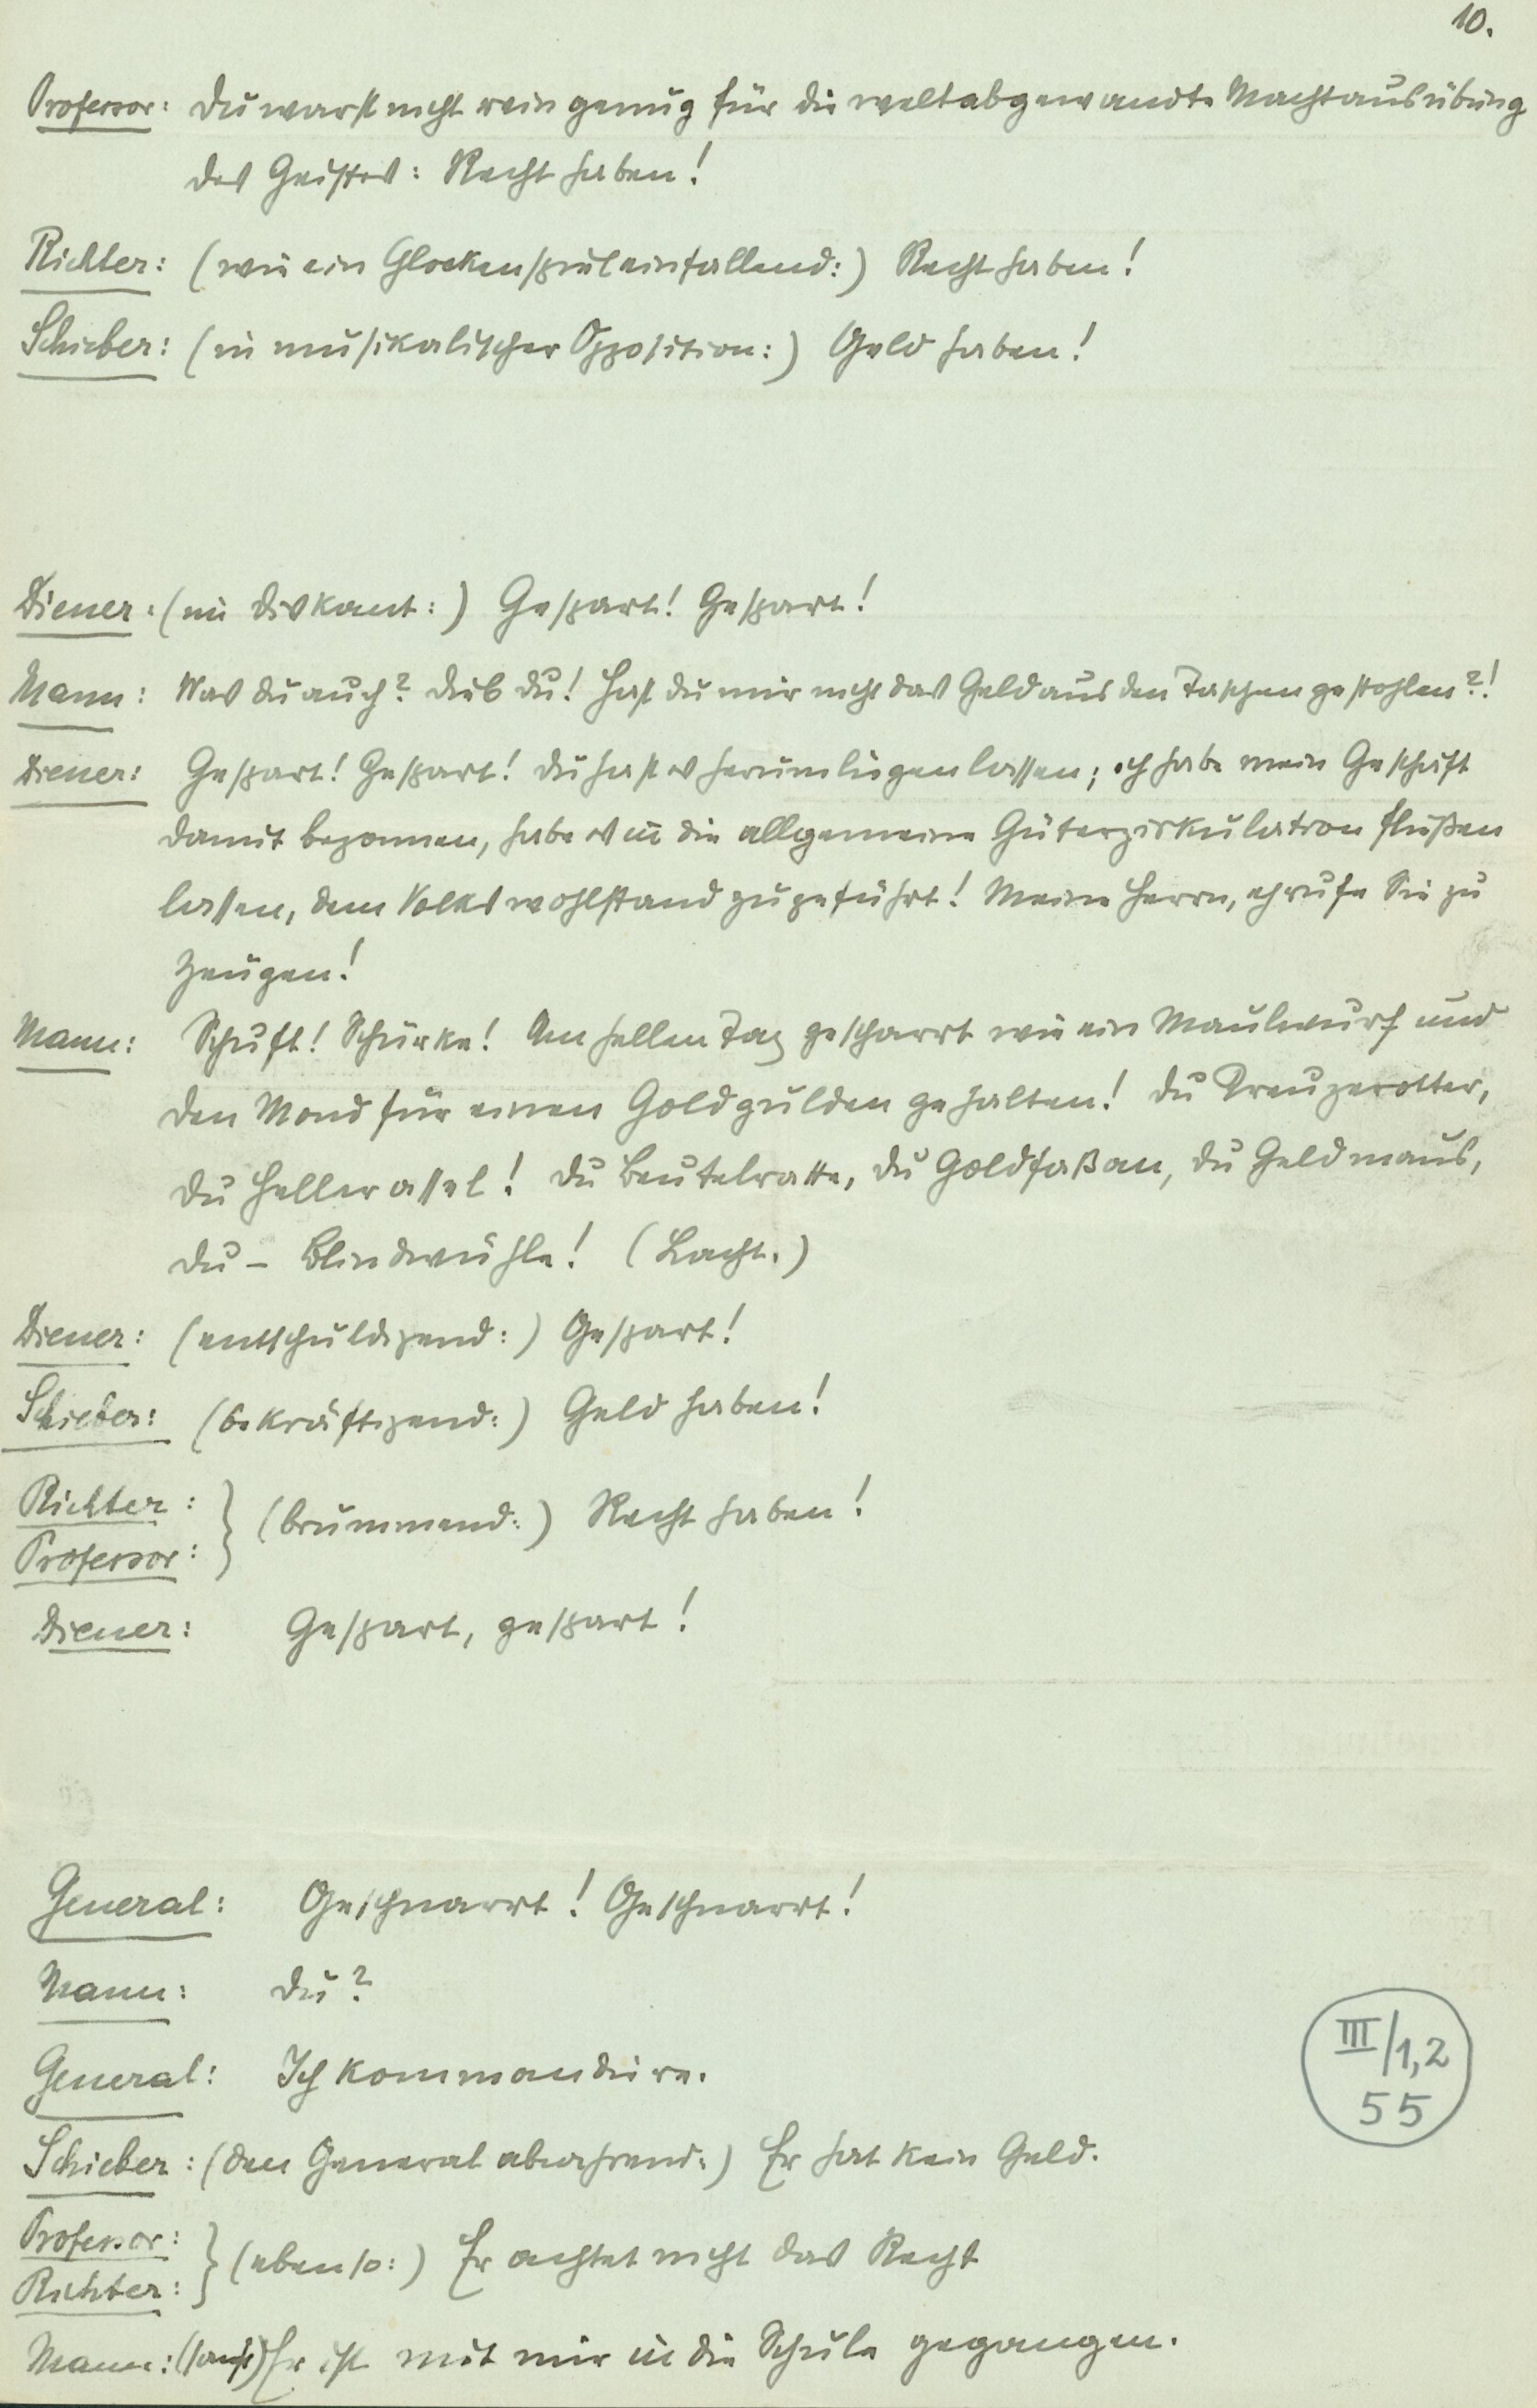 10.
Professor: Du warst nicht rein genug für die weltabgewandte Machtausübung
des Geistes: Recht haben!
Richter: (wie ein Glockenspiel einfallend:) Recht haben!
Schieber: (in musikalischer Opposition:) Geld haben!
Diener: (im Diskant:) Gespart! Gespart!
Mann: Was du auch? Dieb du! Hast du mir nicht das Geld aus den Taschen gestohlen?!
Diener: Gespart! Gespart! Du hast es herumliegen lassen; ich habe mein Geschäft
damit begonnen, habe es in die allgemeine Güterzirkulation fließen
lassen, dem Volkswohlstand zugeführt! Meine Herrn, ich rufe Sie zu
Zeugen!
Mann: Schuft! Schurke! Am hellen Tag gescharrt wie ein Maulwurf und
den Mond für einen Goldgulden gehalten! Du Kreuzerotter,
du Hellerassel! Du Beutelratte, du Goldfaßan, du Geldmaus,
du – Blindwühle! (Lacht.)
Diener: (entschuldigend:) Gespart!
Schieber: (bekräftigend:) Geld haben!
Richter: } (brummend:) Recht haben!
Professor:
Diener: Gespart, gespart!
General: Geschnarrt! Geschnarrt!
Mann: Du?
General: Ich kommandiere.
Schieber: (den General abwehrend:) Er hat kein Geld.
Professor: } (ebenso:) Er achtet nicht das Recht
Richter:
Mann: (sanft) Er ist mit mir in die Schule gegangen.
III/1,2
55